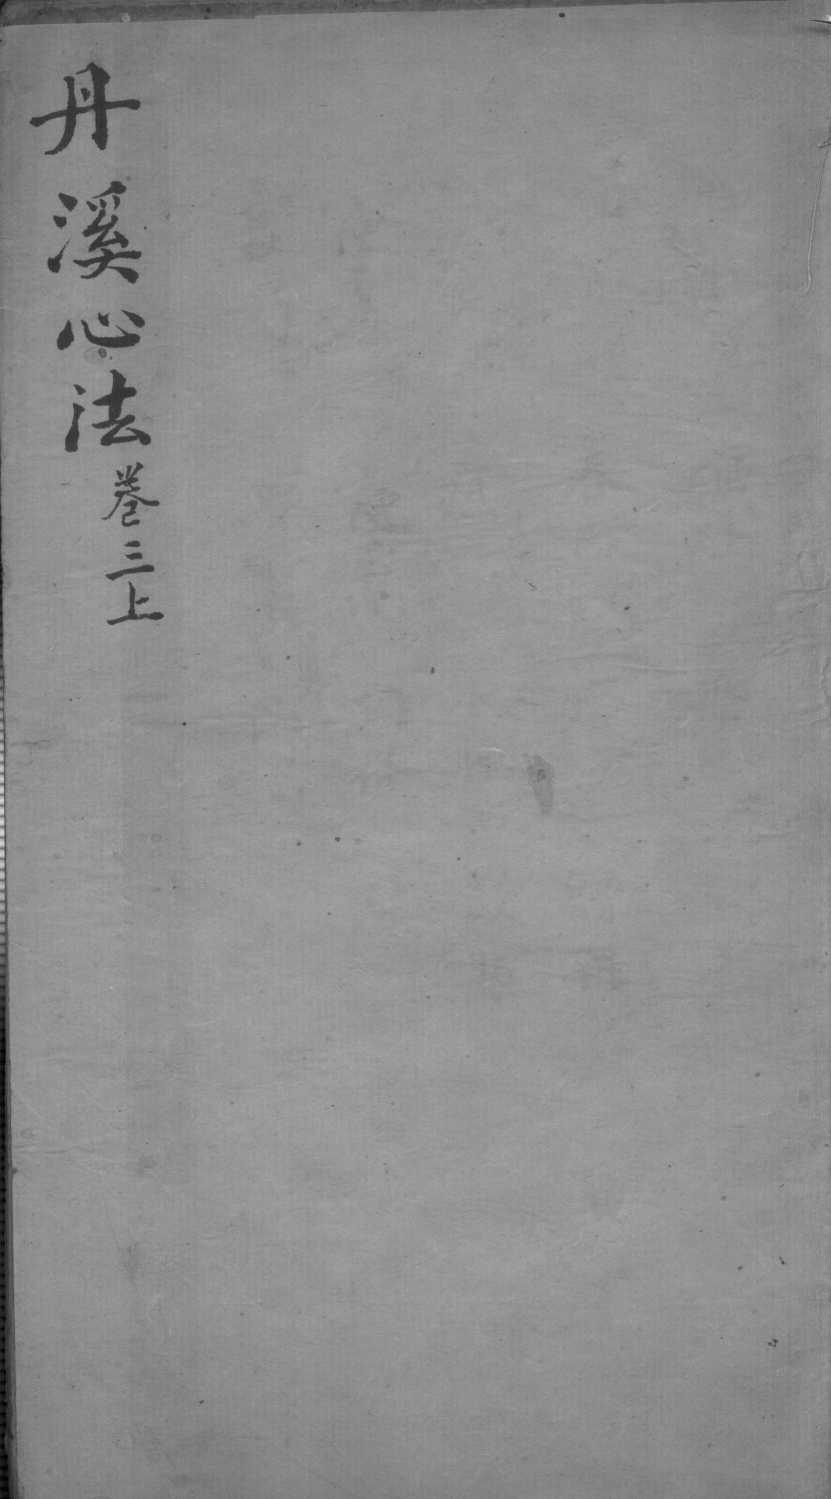 丹溪心法卷三上